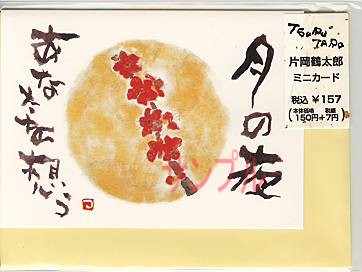 月の夜
あなたを想う
サンプル
TSURU
TARO
片岡鶴太郎
ミニカード
税込 ¥157
(本体価格 税額
150円+7円)